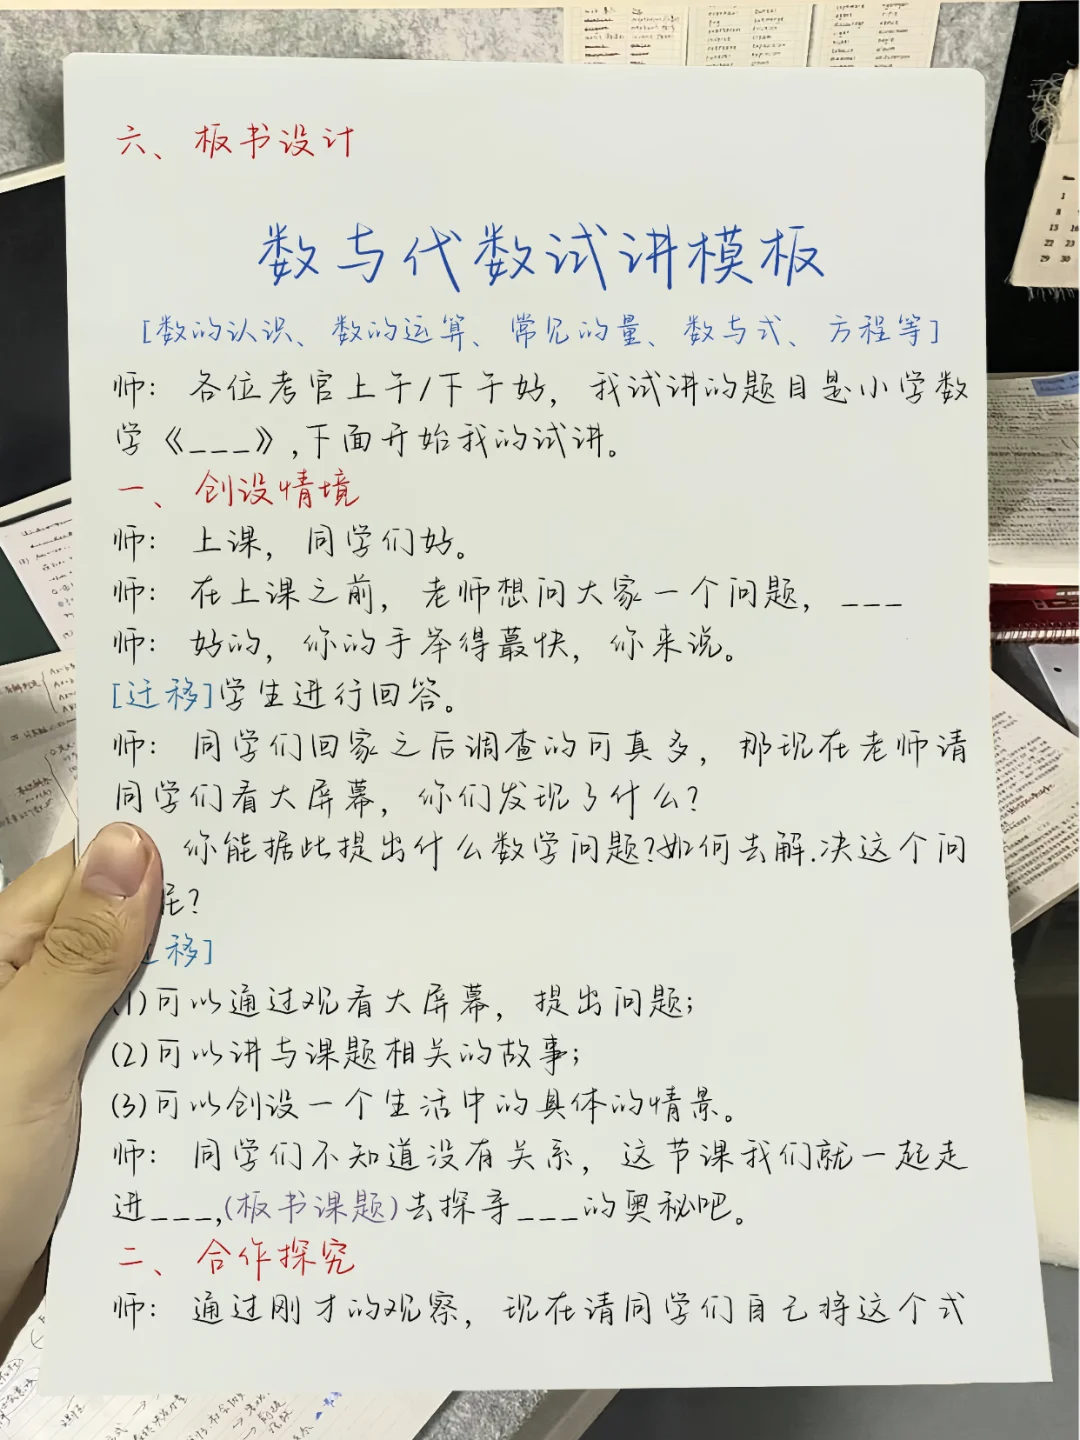 六、板书设计
数与代数试讲模板
[数的认识、数的运算、常见的量、数与式、方程等]
师：各位考官上午/下午好，我试讲的题目是小学数
学《___》,下面开始我的试讲。
一、创设情境
师：上课，同学们好。
师：在上课之前，老师想问大家一个问题，___
师：好的，你的手举得最快，你来说。
[迁移]学生进行回答。
师：同学们回家之后调查的可真多，那现在老师请
同学们看大屏幕，你们发现了什么?
你能据此提出什么数学问题?如何去解.决这个问
呢?
移]
(1)可以通过观看大屏幕，提出问题;
(2)可以讲与课题相关的故事;
(3)可以创设一个生活中的具体的情景。
师：同学们不知道没有关系，这节课我们就一起走
进___,(板书课题)去探寻___的奥秘吧。
二、合作探究
师：通过刚才的观察，现在请同学们自己将这个式